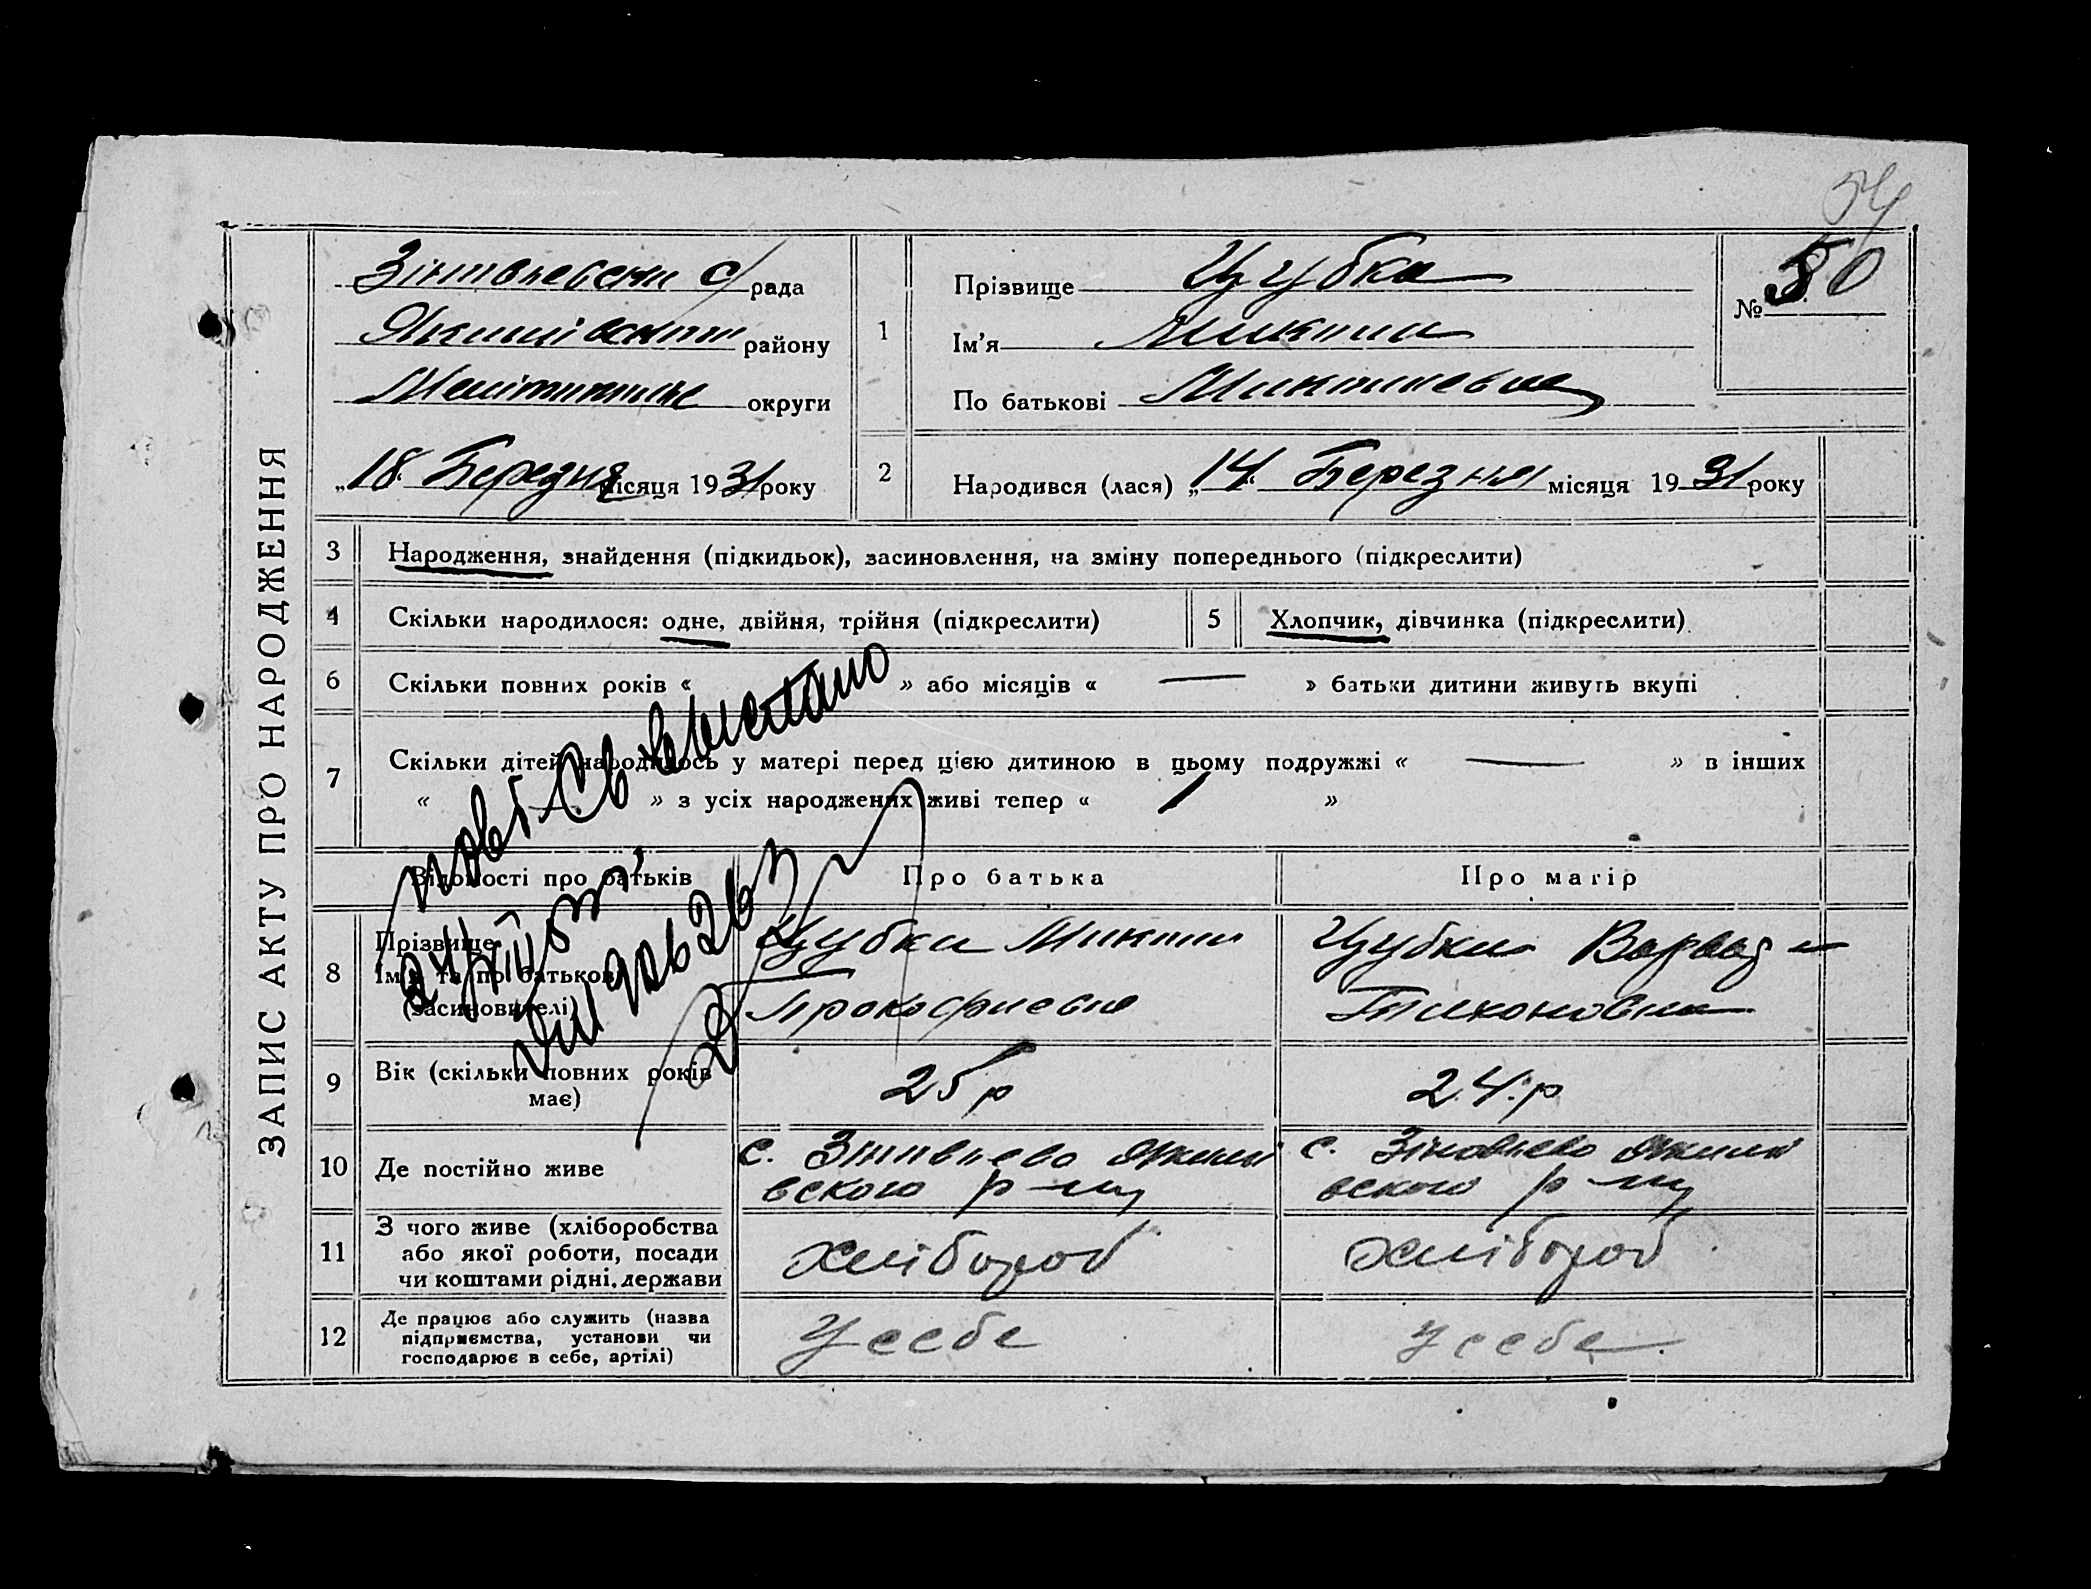 54
ЗАПИС АКТУ ПРО НАРОДЖЕННЯ
с/рада
району
округи
„18. Березня місяця 1931 року
1
Прізвище Цубка
Ім'я Микита
По батькові
№ 50
2
Народився (лася) „14. Березня місяця 1931 року
3
Народження, знайдення (підкидьок), засиновлення, на зміну попереднього (підкреслити)
4
Скільки народилося: одне, двійня, трійня (підкреслити)
5
Хлопчик, дівчинка (підкреслити)
6
Скільки повних років « » або місяців « — » батьки дитини живуть вкупі
7
Скільки дітей народилось у матері перед цією дитиною в цьому подружжі « — » в інших
« » з усіх народжених живі тепер « / »
Відомості про батьків
Про батька
Про матір
8
Прізвище
Ім'я та по батькові
(засиновителі)
Цубка Микита
Прокофиевич
Цубка Варвара
Тихоновна
9
Вік (скільки повних років
має)
25 р
24. р
10
Де постійно живе
с.
вского р-ну
с. Зіновьево
вского р-ну
11
З чого живе (хліборобства
або якої роботи, посади
чи коштами рідні, держави
хлібороб
хлібороб
12
Де працює або служить (назва
підприємства, установи чи
господарює в себе, артілі)
У себе
У себе